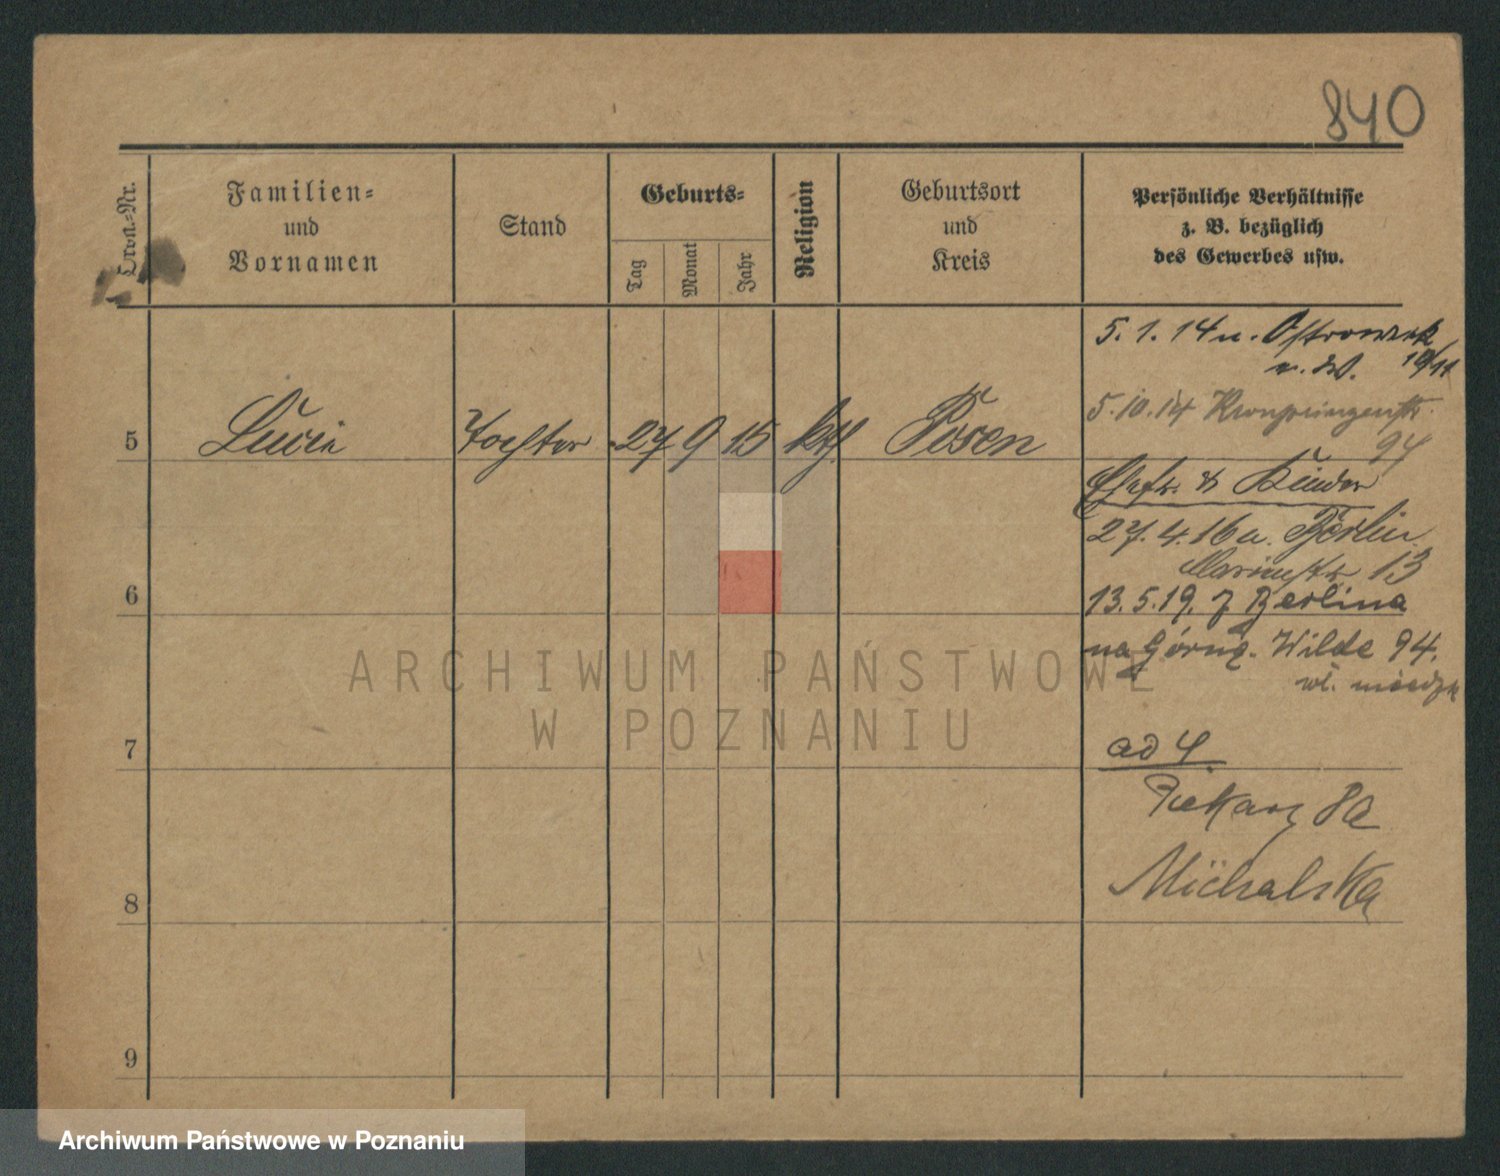 840
Ordn.-Nr.
Familien-
und
Vornamen
Stand
Geburts-
Tag
Monat
Jahr
Religion
Geburtsort
und
Kreis
Persönliche Verhältnisse
z. B. bezüglich
des Gewerbes usw.
5 Lucie Tochter 27 9 15 kth. Posen
5. 1. 14 n.
19/11
5.10.14 Kronprinzenstr.
94
Ehefr. & Kinder
27. 4. 16 a. Berlin
13
13. 5. 19. z Berlina
na Górną. Wilde 94.
ad 4.
Piekary 8a
Michalska
6
7
8
9
ARCHIWUM PAŃSTWOWE
W POZNANIU
Archiwum Państwowe w Poznaniu